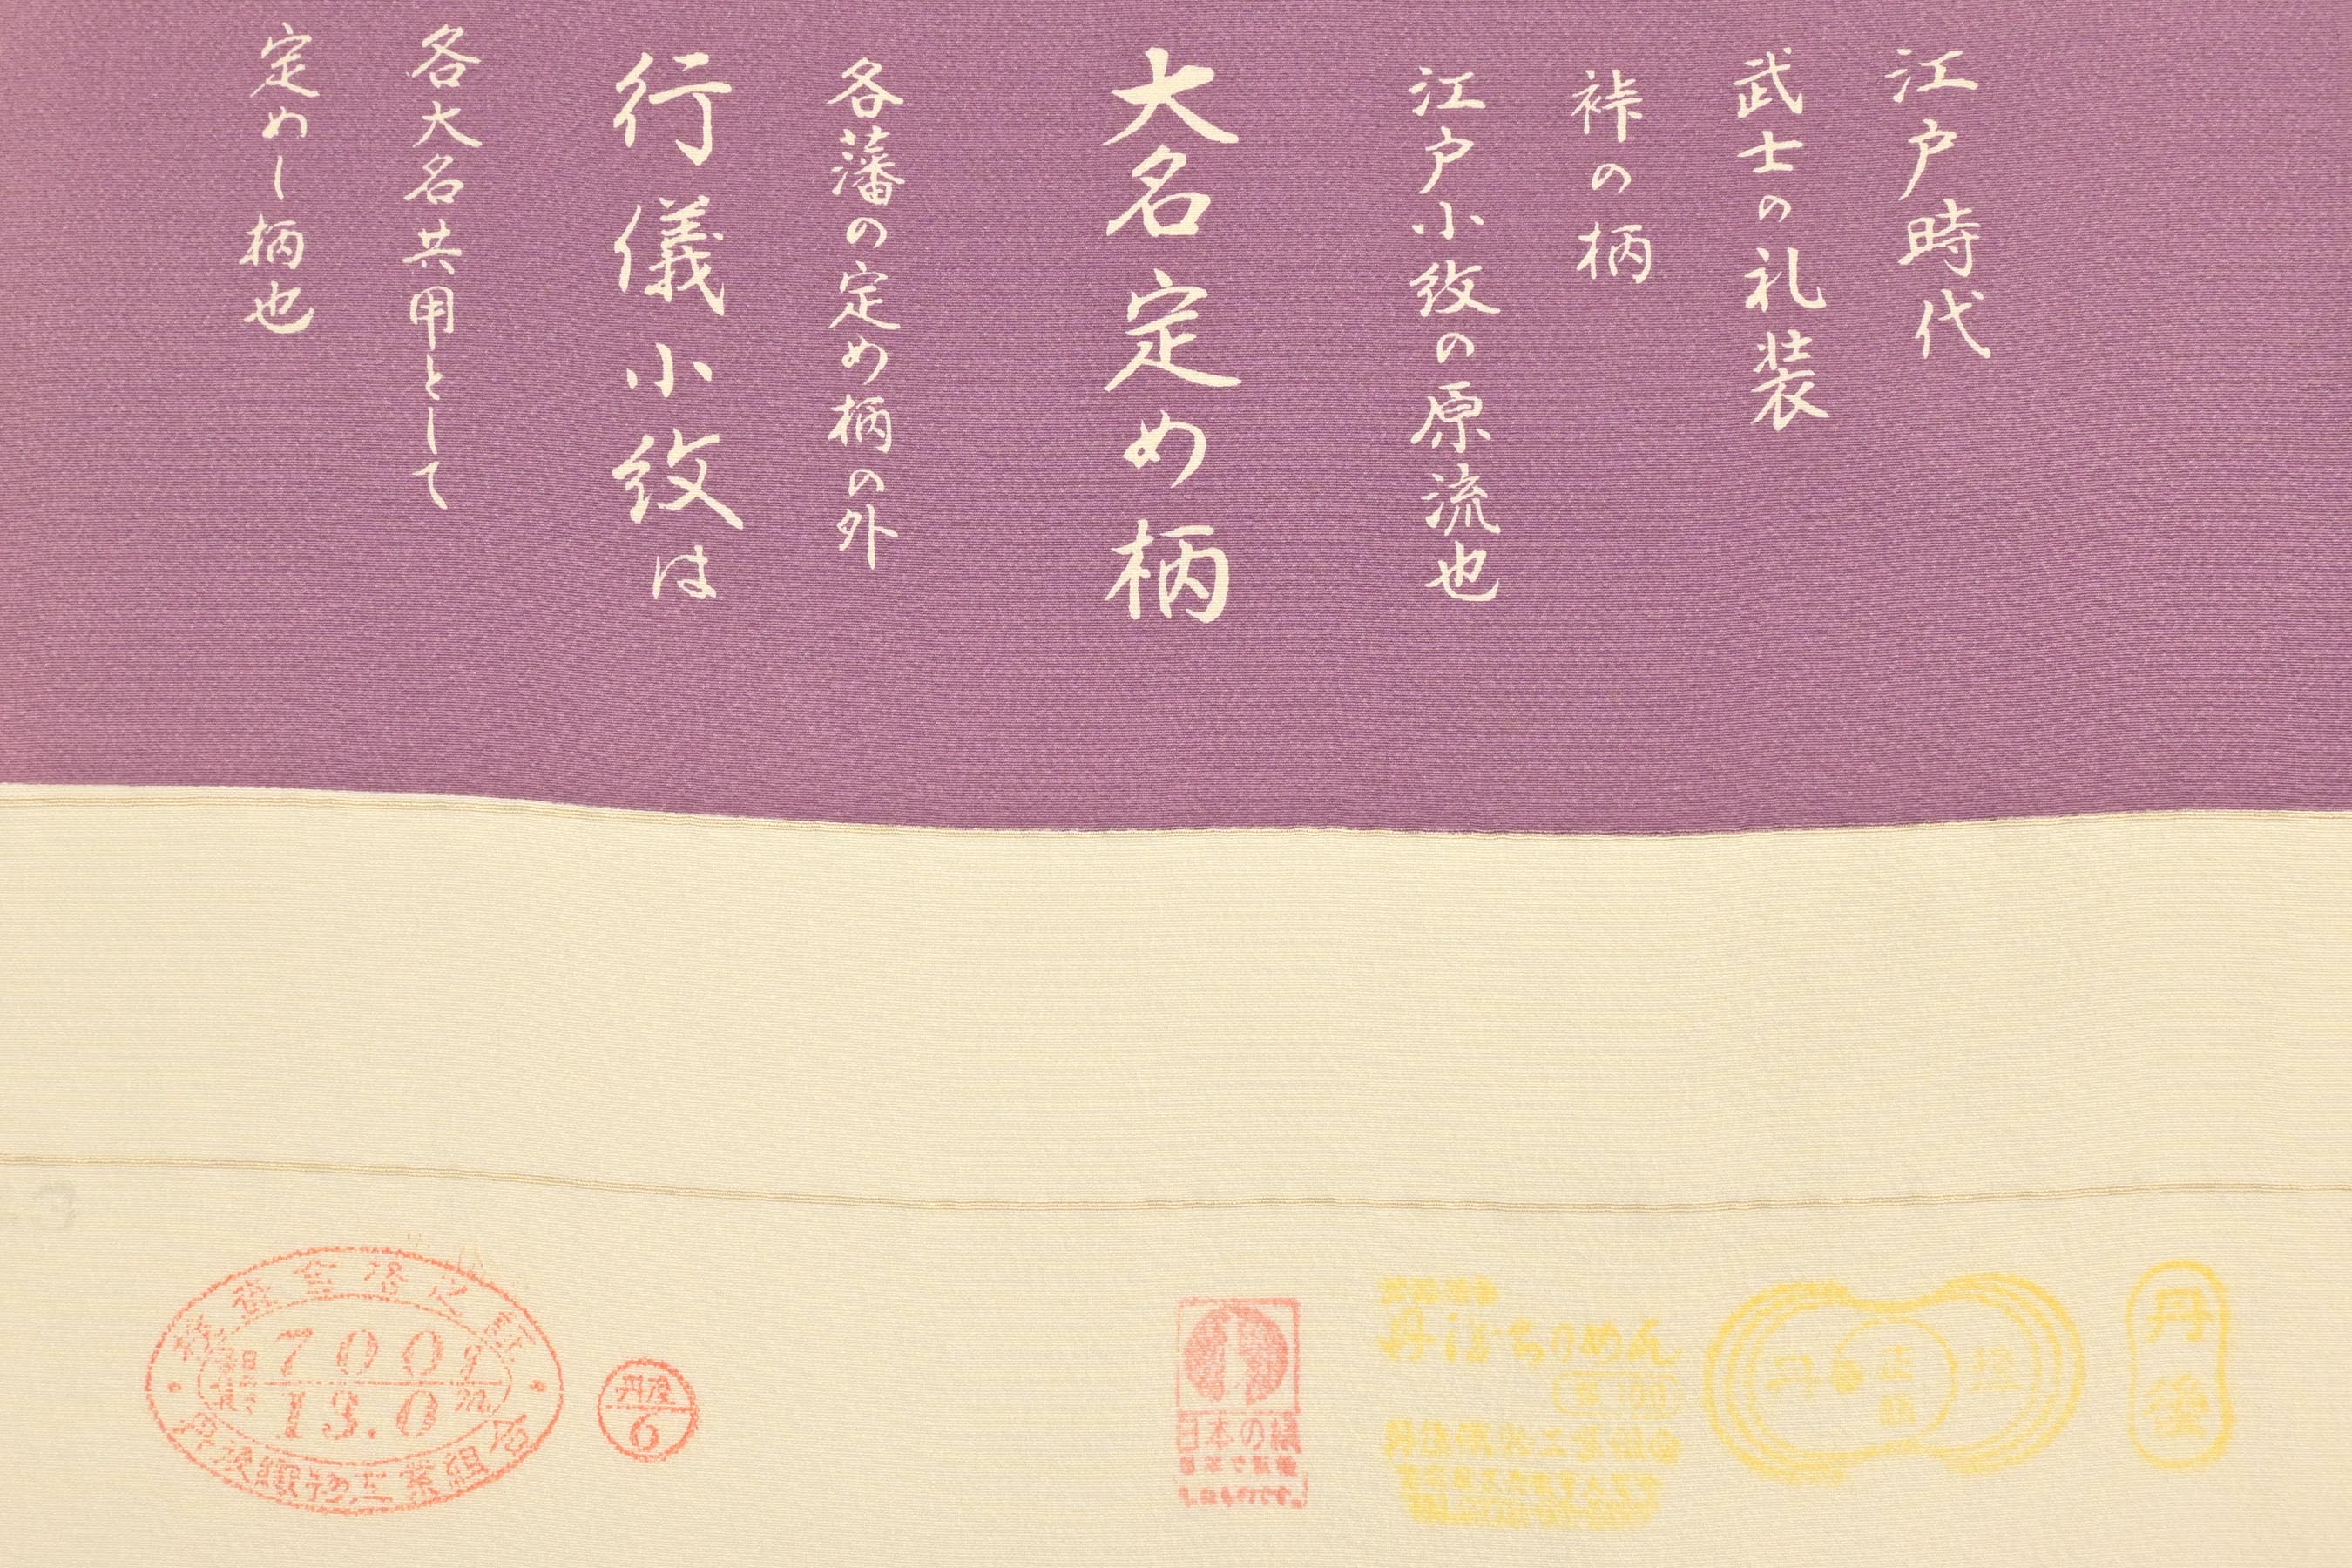 江戸時代
武士の礼装
裃の柄
江戸小紋の原流也
大名定め柄
各藩の定め柄の外
行儀小紋は
各大名共用として
定めし柄也
検査合格之証
700g
13.0
丹後織物工業組合
丹後
6
日本の絹
丹後ちりめん
丹後織物工業組合
丹後